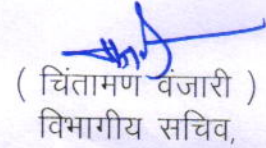 ( चिंतामण वंजारी )
विभागीय सचिव,